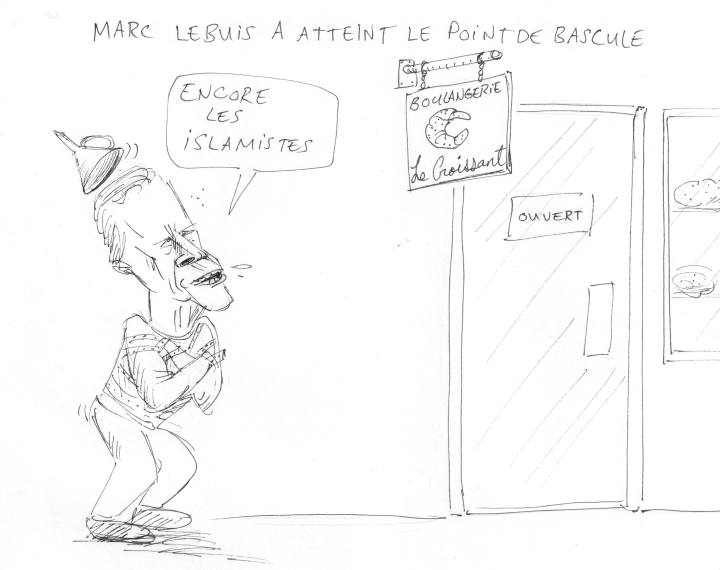 MARC LEBUIS A ATTEINT LE POINT DE BASCULE
ENCORE
LES
ISLAMISTES
BOULANGERIE
Le Croissant
OUVERT